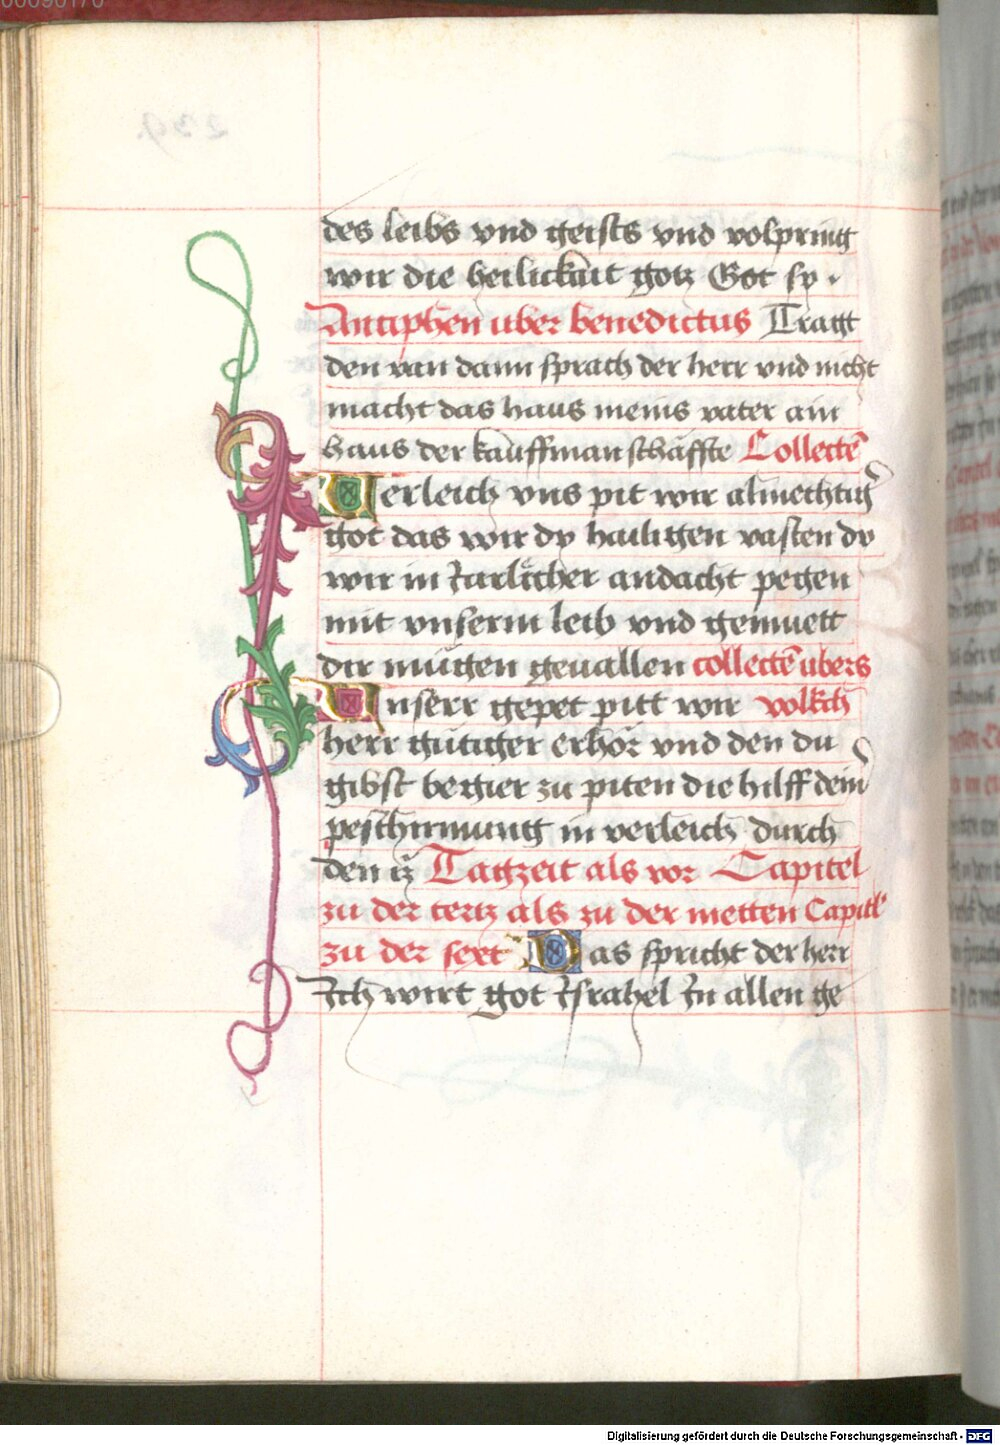 des leibs vnd geists vnd volpring
wir die heilickait gotz Got sp.
Antiphen uber benedictus Tragt
den van dann sprach der herr vnd nicht
macht das haus meins vater ain
haus der kauffmanschäffte Collectē
Verleich vns pit wir almechtig̃
got das wir dy hailigen vasten dy
wir in Jarlicher andacht pegen
mit vnserm leib vnd gemuett
dir mugen geuallen collectē ubers
Vnserr gepet pitt wir volkch
herr gutiger erhör vnd den du
gibst begier zu piten die hilff dein̄
peschirmung in verleich durch
den iz̄ Tagzeit als vor Capitel
zu der tertz als zu der metten Capitl'
zu der sext Das spricht der herr
Ich wirt got Israhel Jn allen ge
Digitalisierung gefördert durch die Deutsche Forschungsgemeinschaft - DFG